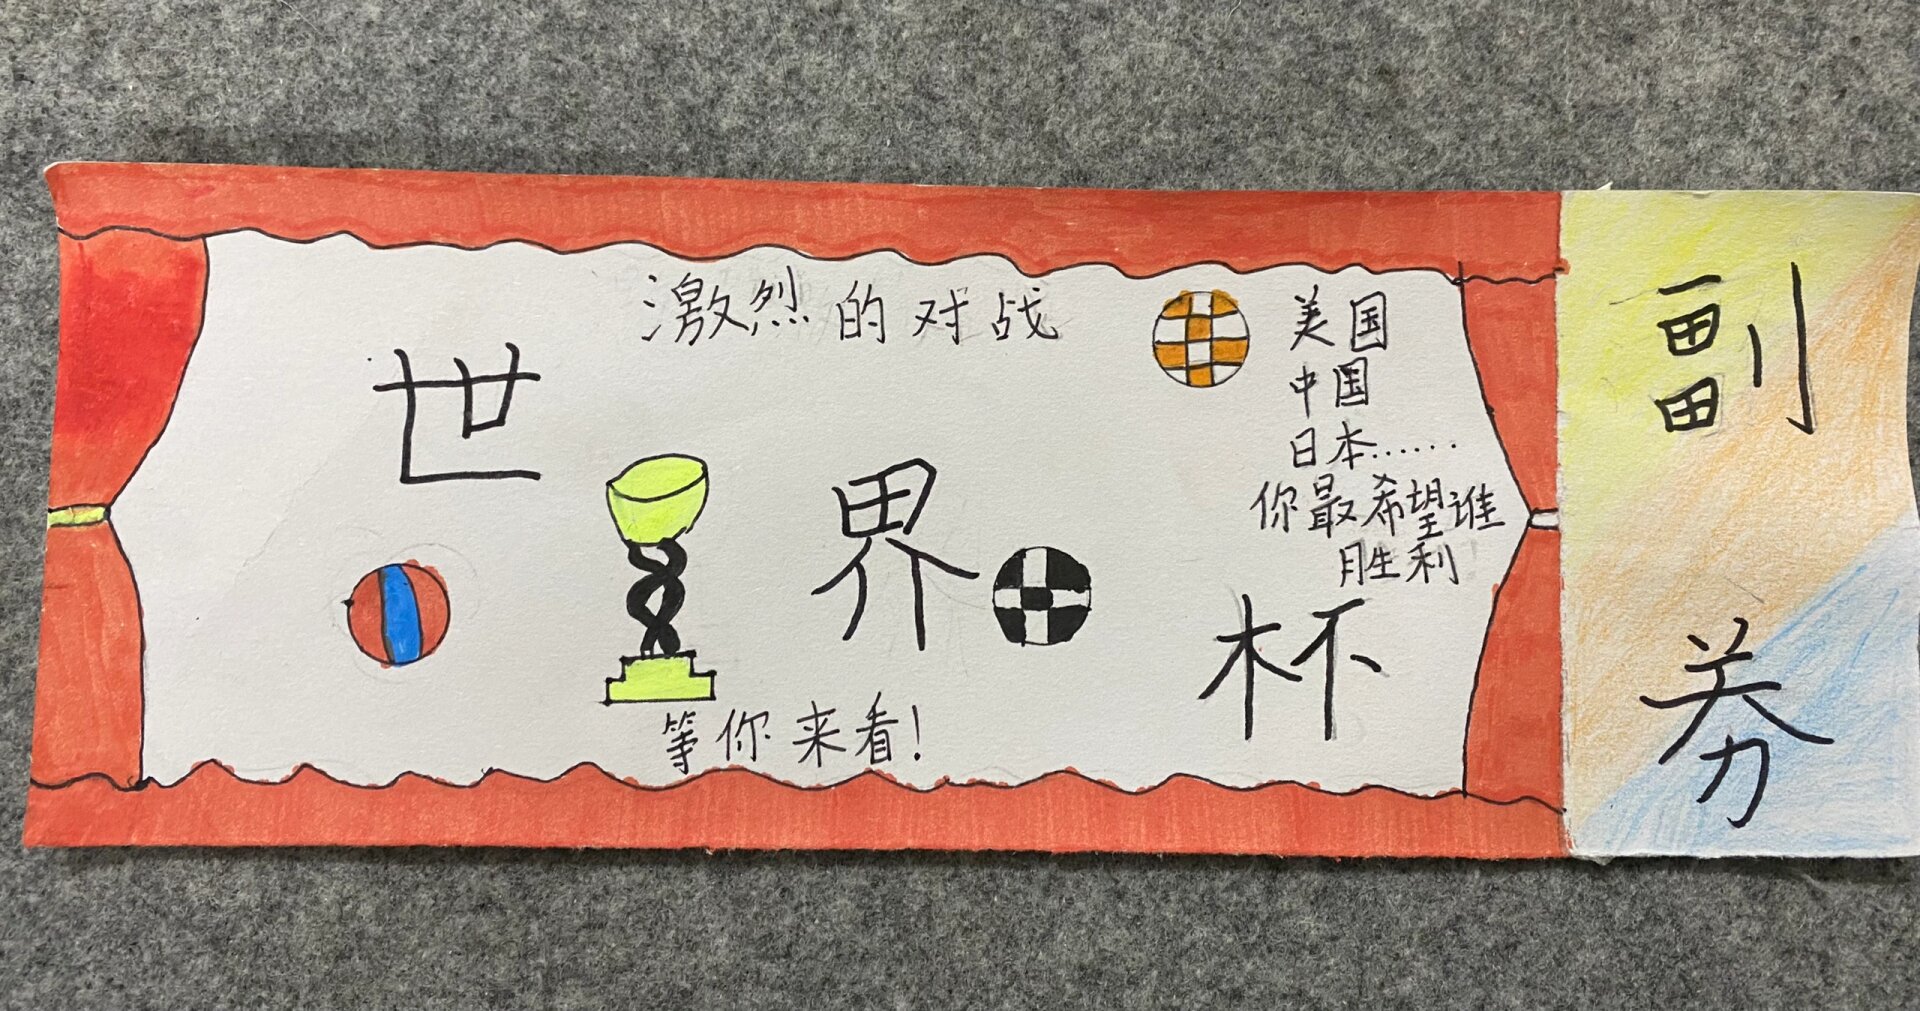 激烈的对战
世界杯
美国
中国
日本......
你最希望谁
胜利
等你来看!
副券